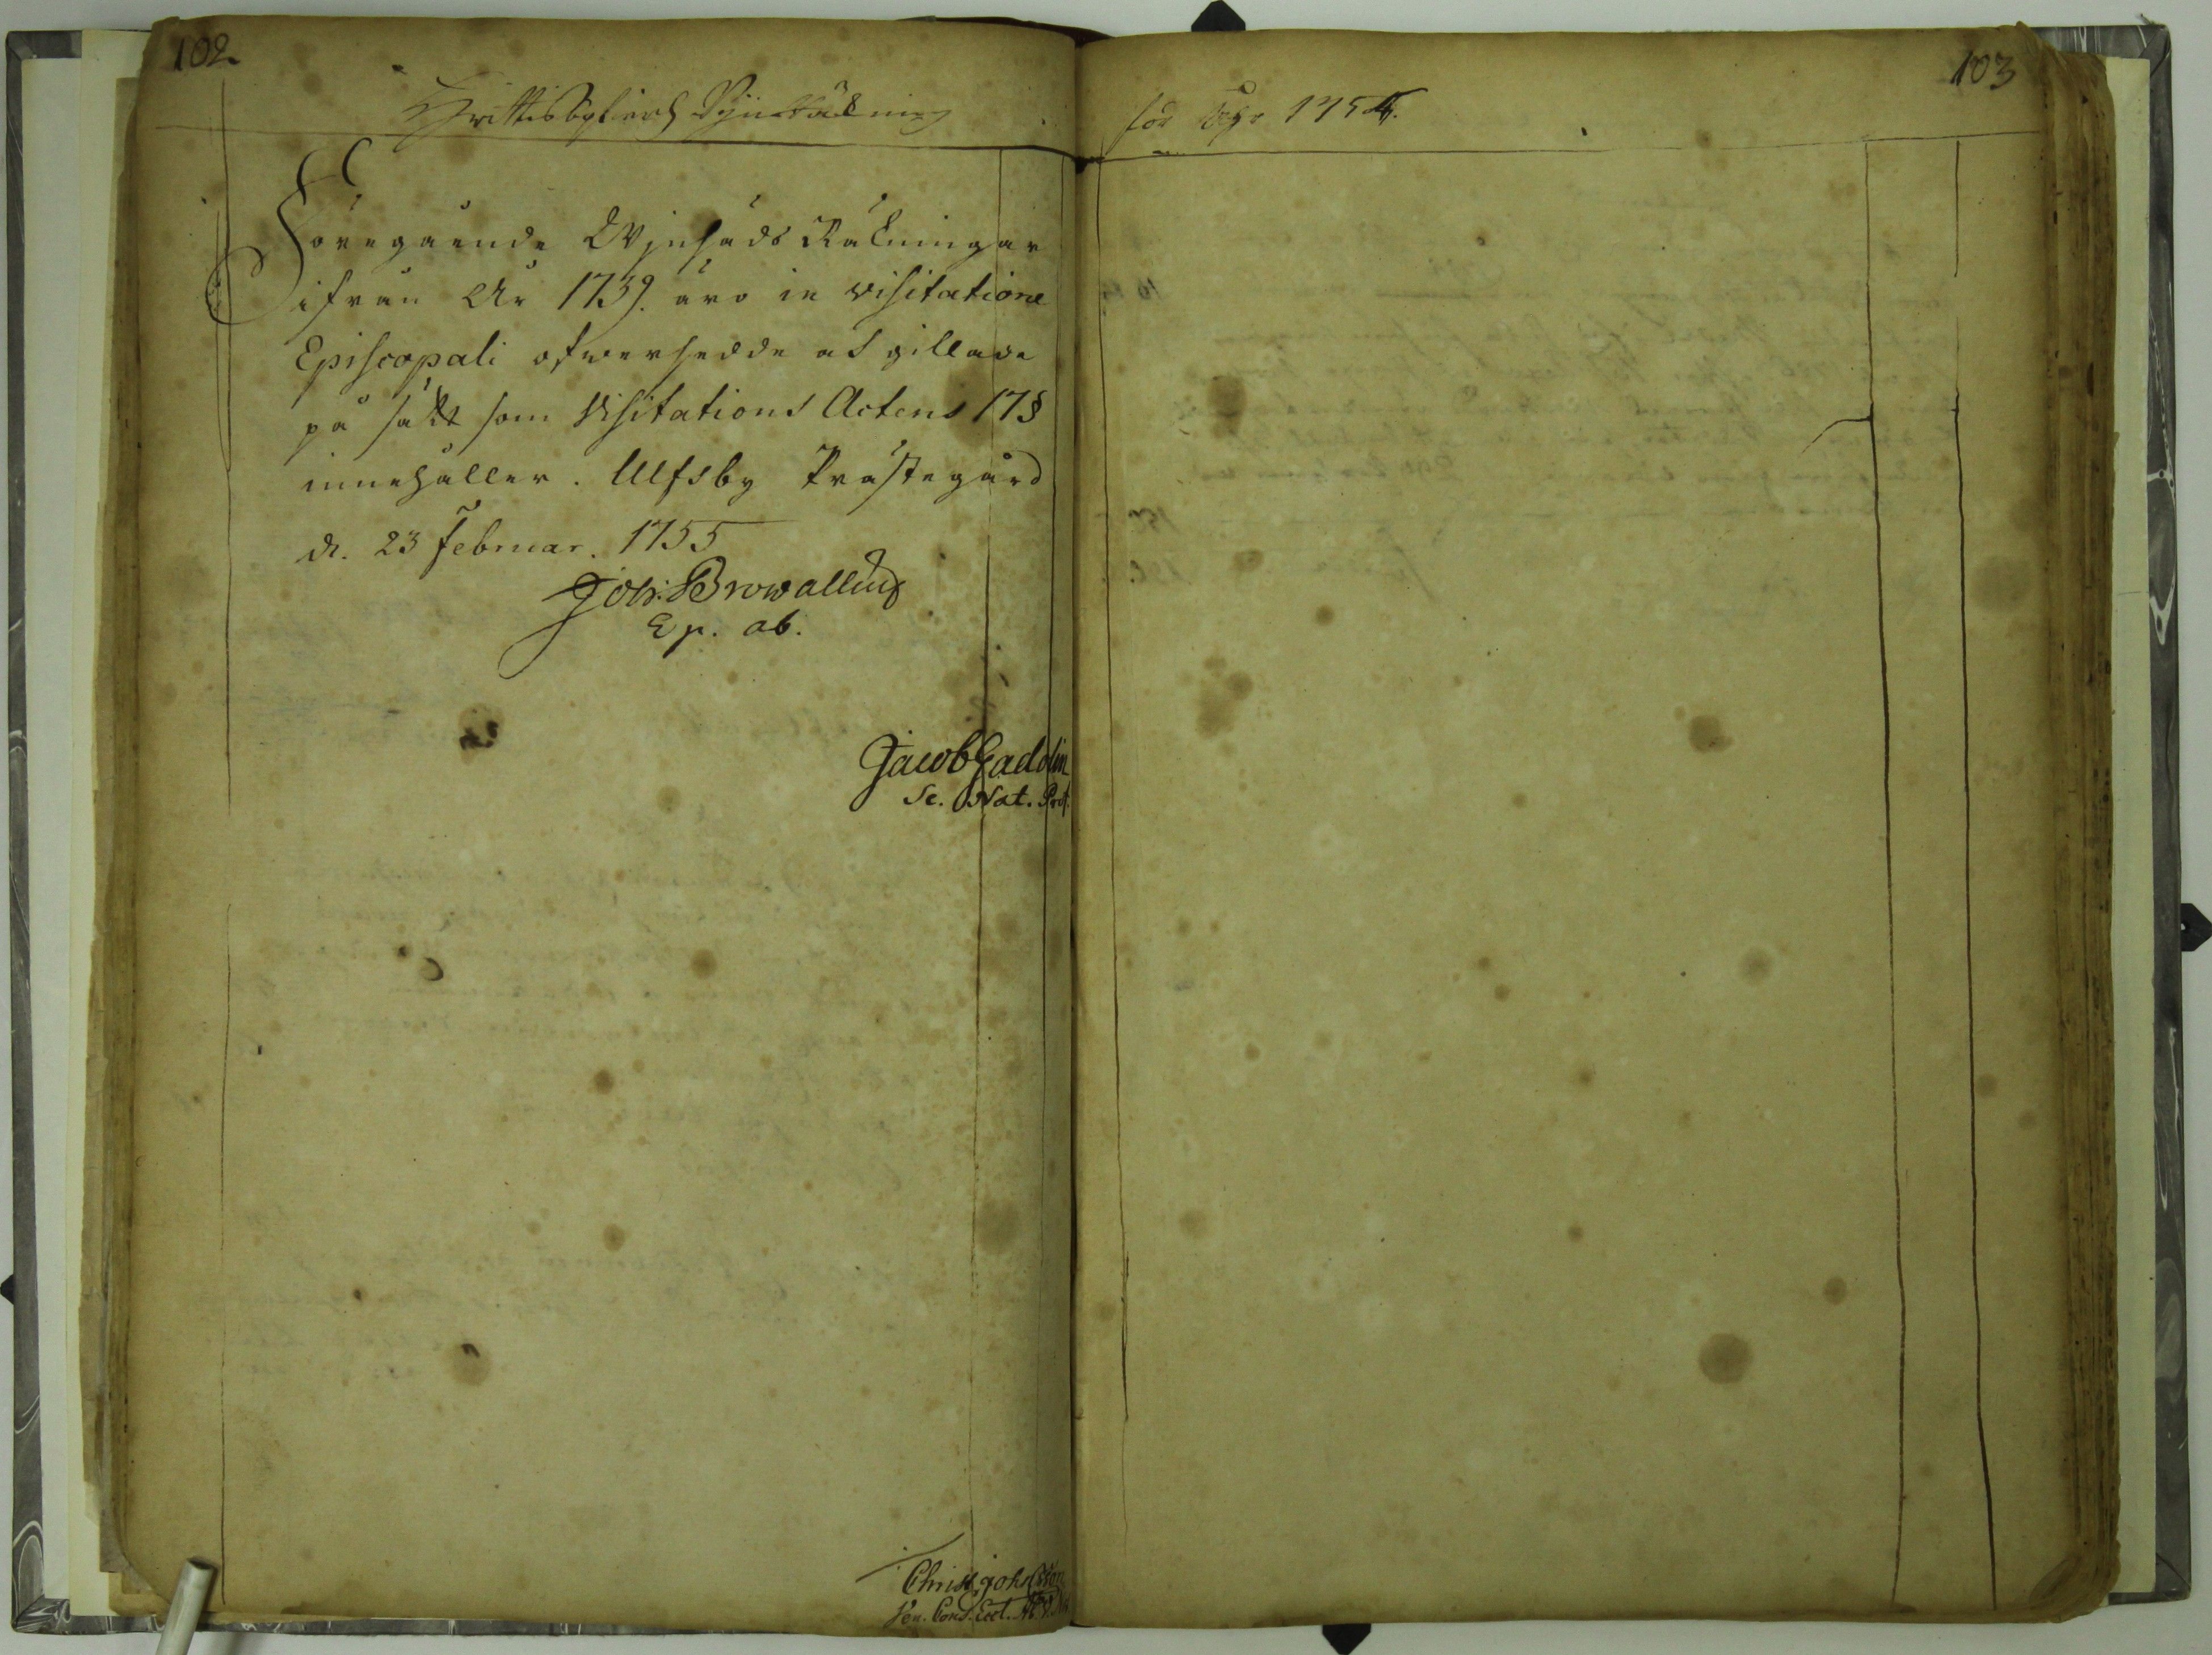 102
Hvittisbofierd Wijnräkning
Föregående Wijnhåds Räkningar
ifrån År 1739. äro in visitatione
Episcopali öfwersedde och gillade
på sätt som Visitations Actens 17 §
innehåller. Ulfsby Prästegård
d. 23 Februar. 1755
Joh: Browallius
Ep. ab.
Jacob Gadolin
Sc. Nat. Prof.
Christ. Johnsson
Cons. Eccl.
103
för Åhr 1754.